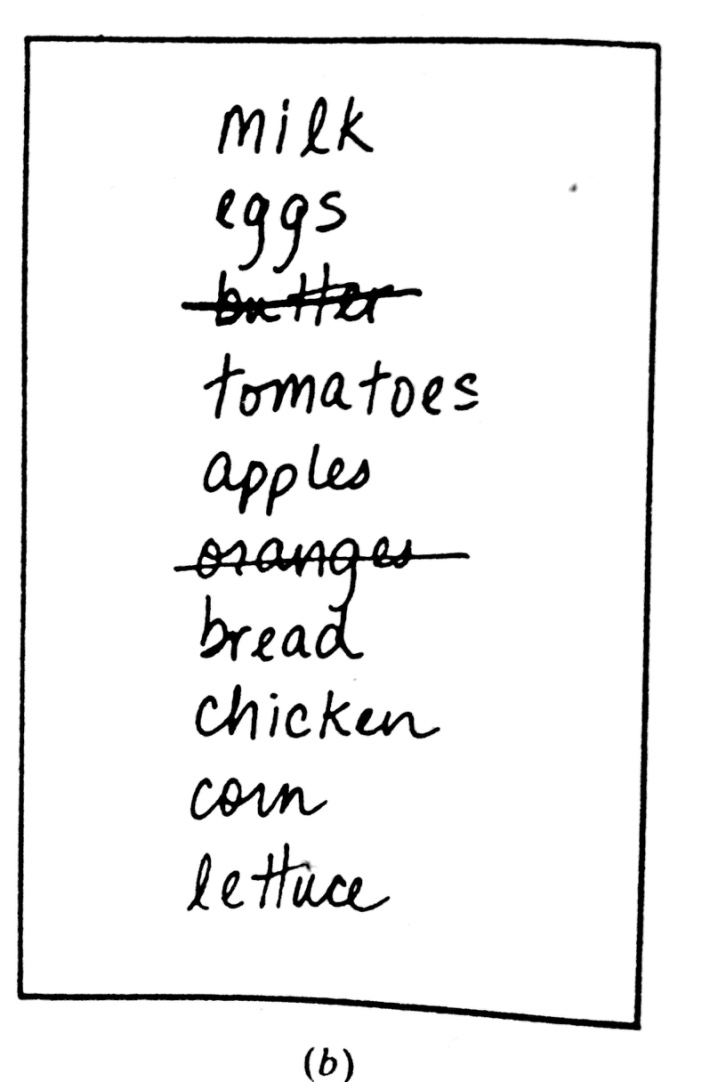 milk
eggs
butter
tomatoes
apples
oranges
bread
chicken
corn
lettuce
(b)